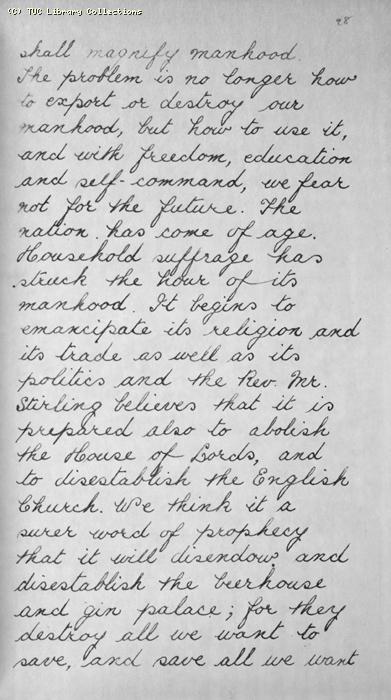 (C) TUC Library Collections
98
shall magnify manhood.
The problem is no longer how
to export or destroy our
manhood, but how to use it,
and with freedom, education
and self-command, we fear
not for the future. The
nation has come of age.
Household suffrage has
struck the hour of its
manhood. It begins to
emancipate its religion and
its trade as well as its
politics and the Rev. Mr.
Stirling believes that it is
prepared also to abolish
the House of Lords, and
to disestablish the English
Church. We think it a
surer word of prophecy
that it will disendow and
disestablish the beerhouse
and gin palace; for they
destroy all we want to
save, and save all we want